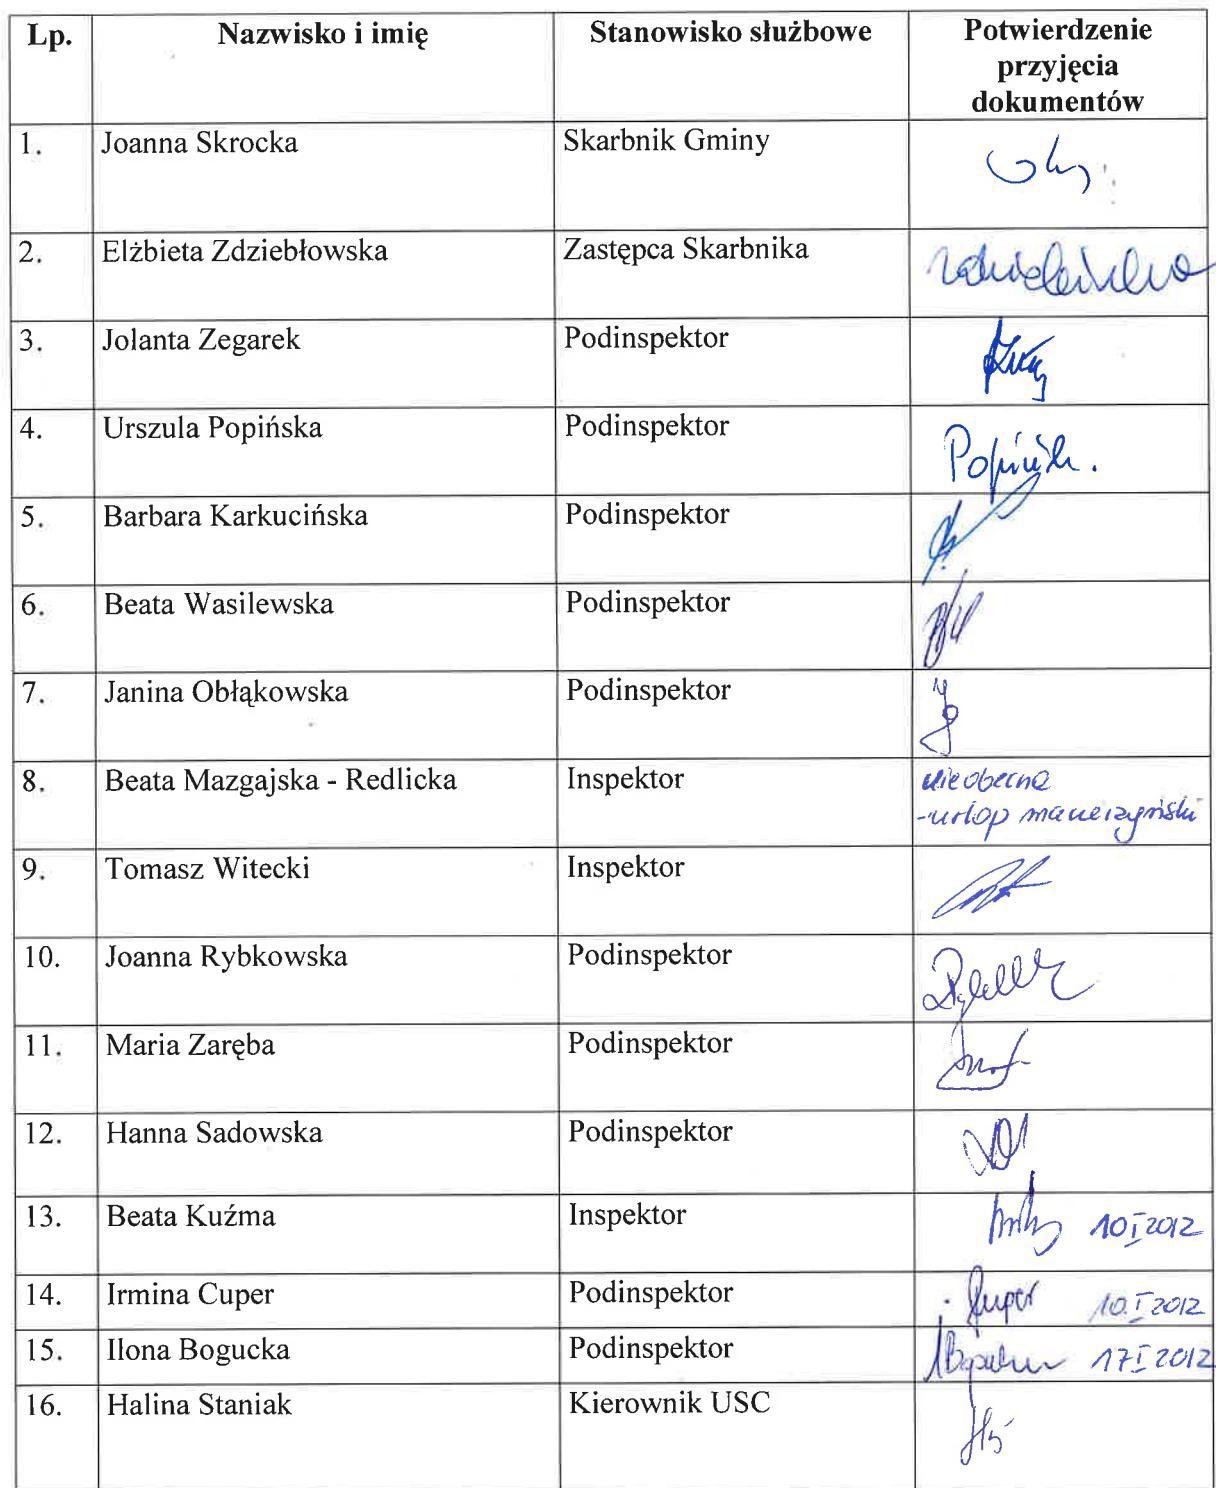 Lp. Nazwisko i imię Stanowisko służbowe Potwierdzenie
przyjęcia
dokumentów
1. Joanna Skrocka Skarbnik Gminy
2. Elżbieta Zdziebłowska Zastępca Skarbnika
3. Jolanta Zegarek Podinspektor
4. Urszula Popińska Podinspektor
5. Barbara Karkucińska Podinspektor
6. Beata Wasilewska Podinspektor
7. Janina Obłąkowska Podinspektor
8. Beata Mazgajska - Redlicka Inspektor nieobecna
-urlop macierzyński
9. Tomasz Witecki Inspektor
10. Joanna Rybkowska Podinspektor
11. Maria Zaręba Podinspektor
12. Hanna Sadowska Podinspektor
13. Beata Kuźma Inspektor 10 I 2012
14. Irmina Cuper Podinspektor Cuper 10. I 2012
15. Ilona Bogucka Podinspektor 17 I 2012
16. Halina Staniak Kierownik USC